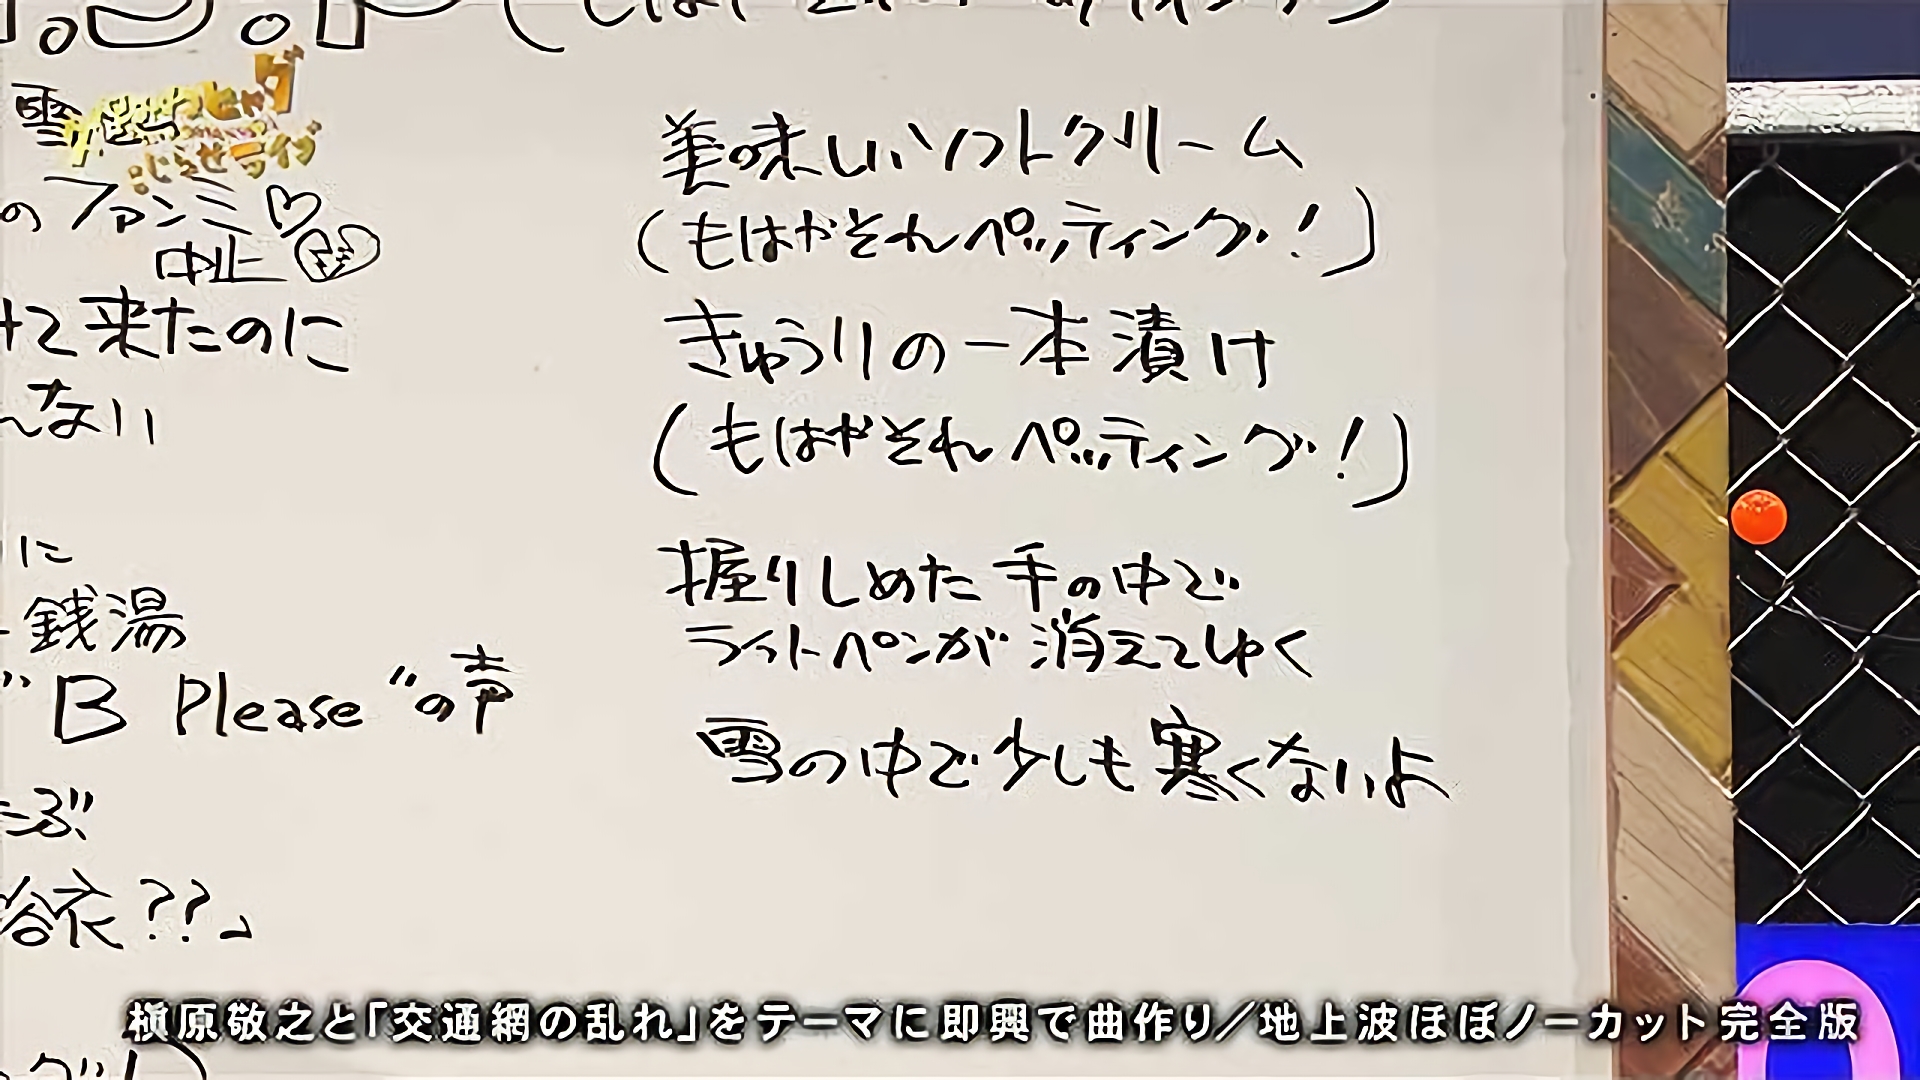 雪
のファンミ♡
中止💔
けて来たのに
んない
に
銭湯
" B Please "の声
ぶ
浴衣??」
美味しいソフトクリーム
(もはやそれペッティング!)
きゅうりの一本漬け
(もはやそれペッティング!)
握りしめた手の中で
ライトペンが消えてゆく
雪の中で少しも寒くないよ
槇原敬之と「交通網の乱れ」をテーマに即興で曲作り/地上波ほぼノーカット完全版